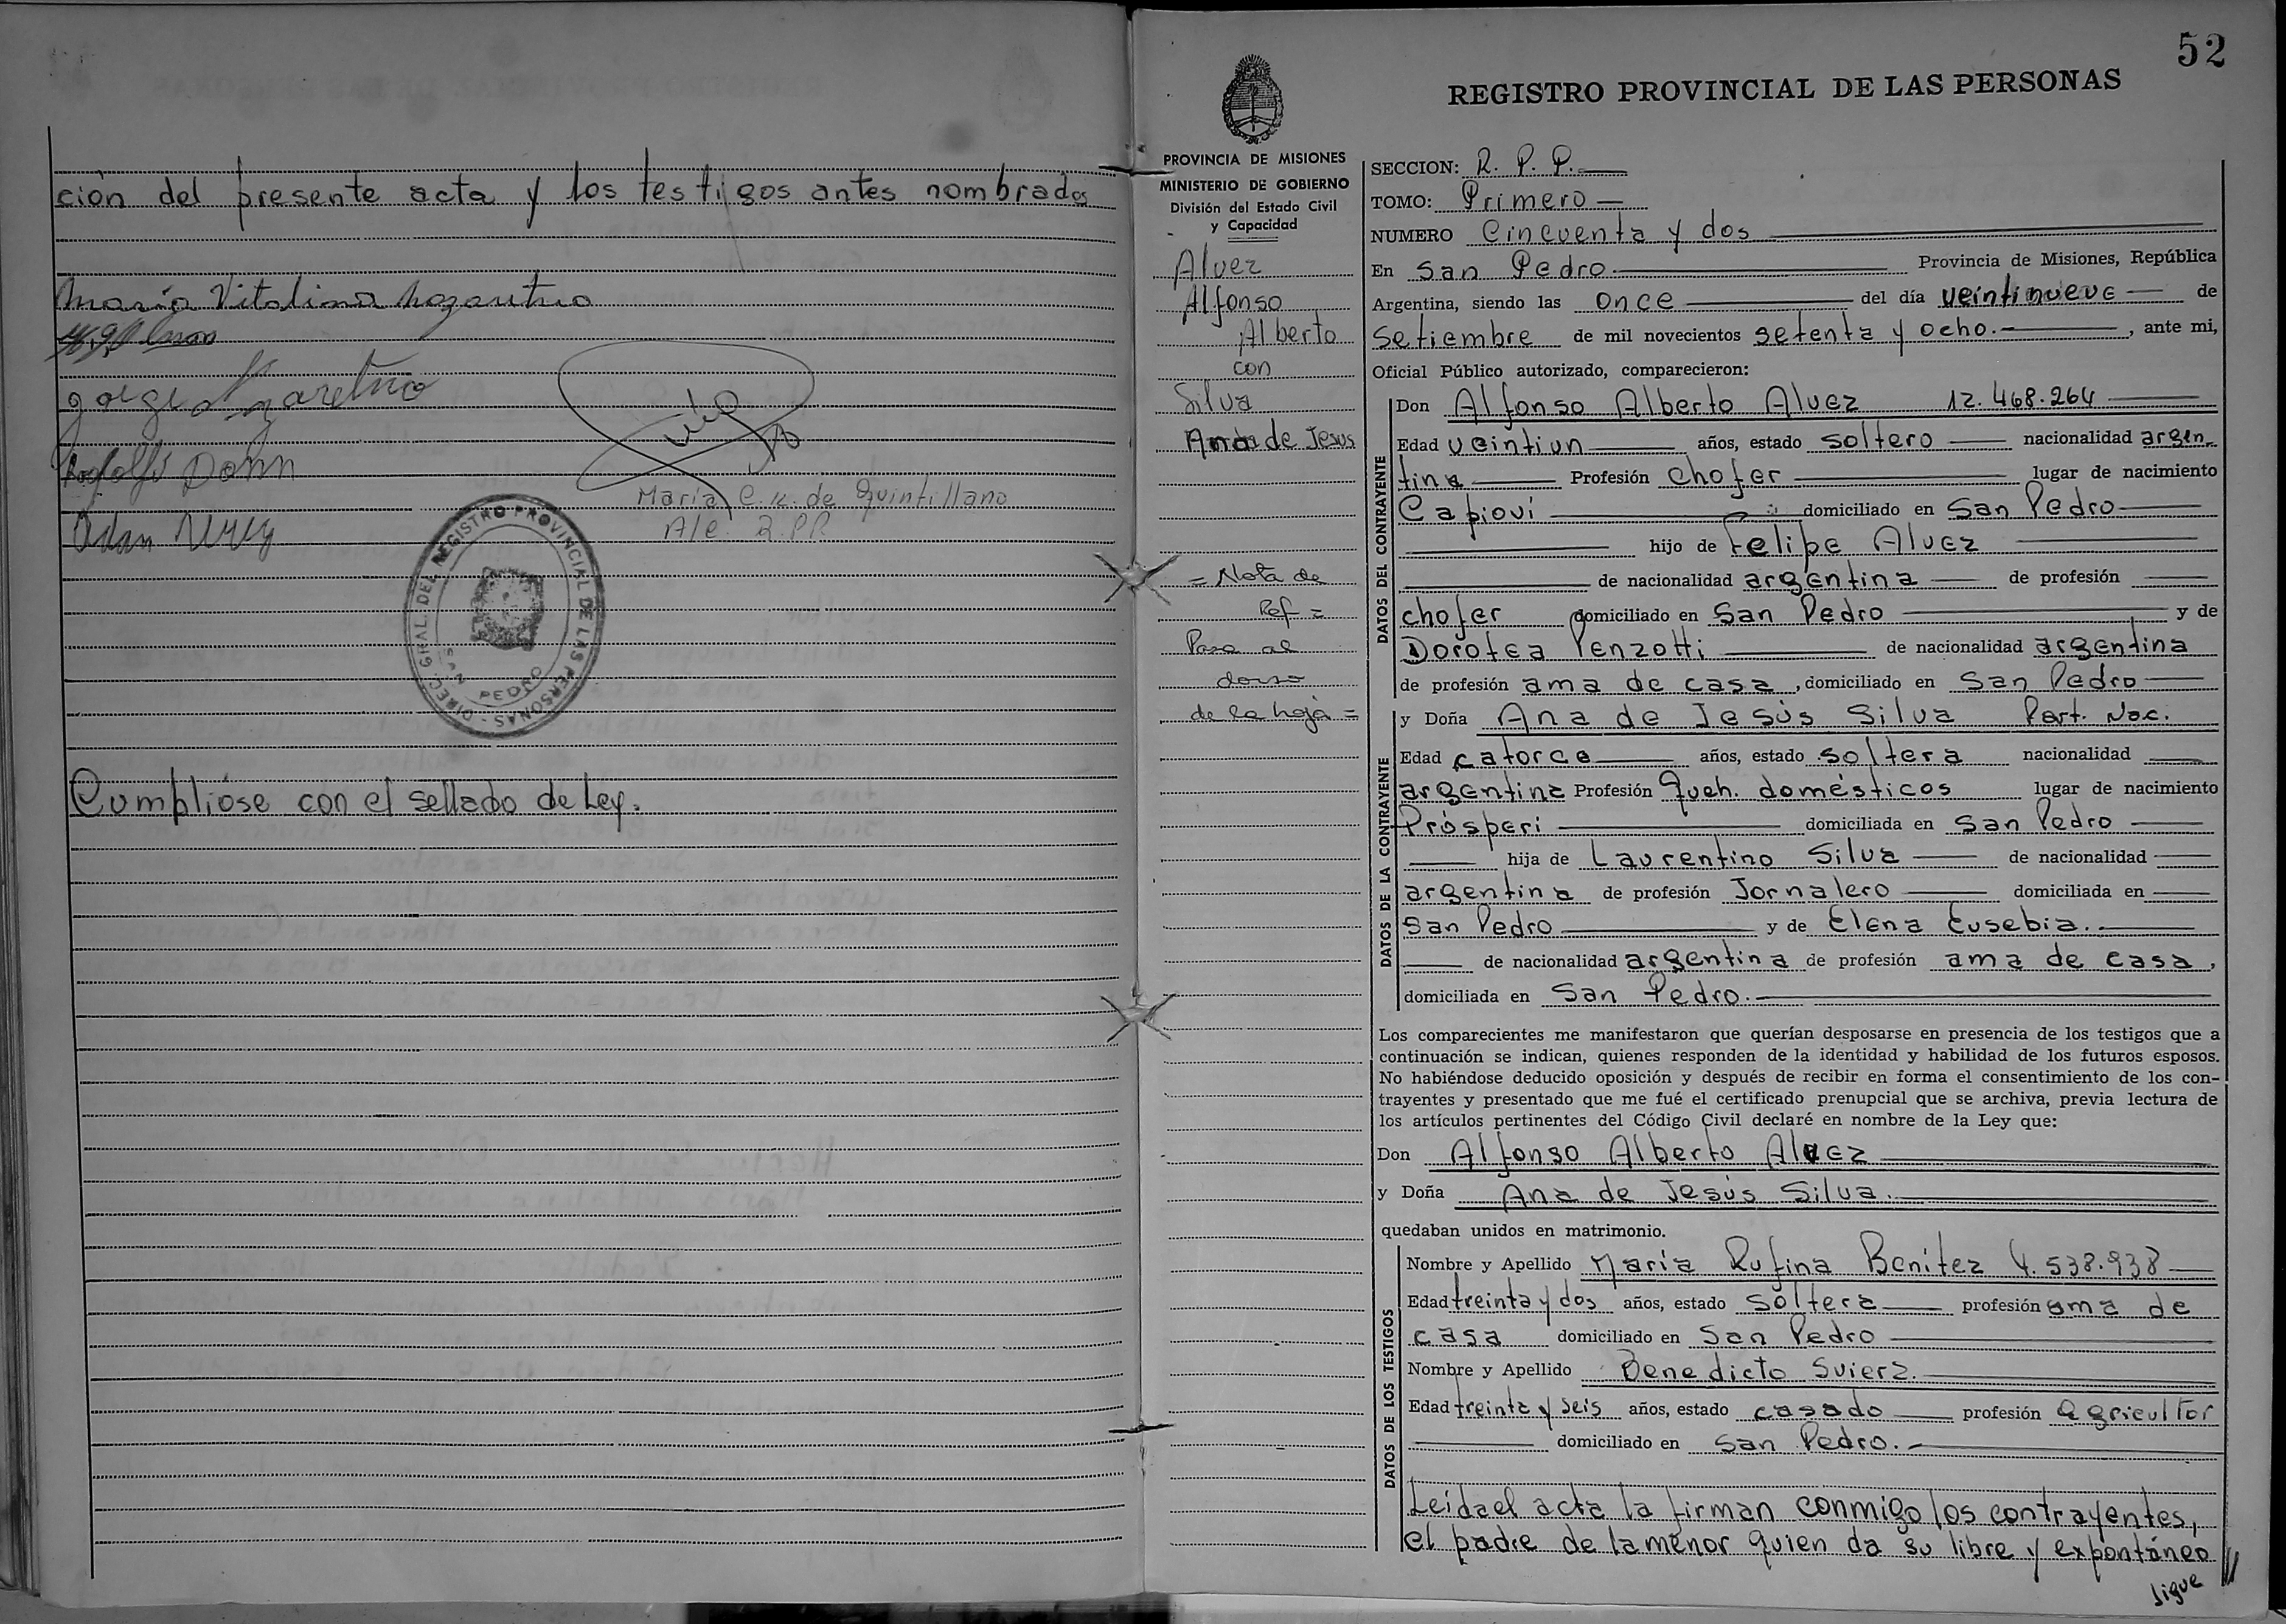 ción del presente acta y los testigos antes nombrados
María Vitalina Nazaretno
Rodolfo Dohn
María C. K. de Quintillano
A/C. R.PP.
DIREC. GRAL. DEL REGISTRO PROVINCIAL DE LAS PERSONAS -
SAN PEDRO
Cumplióse con el sellado de Ley.
52
REGISTRO PROVINCIAL DE LAS PERSONAS
PROVINCIA DE MISIONES
MINISTERIO DE GOBIERNO
División del Estado Civil
y Capacidad
Alvez
Alfonso
Alberto
con
Silva
Ana de Jesus
= Nota de
Ref =
Pasa al
dorso
de la hoja =
SECCION: R. P. P.
TOMO: Primero
NUMERO Cincuenta y dos
En San Pedro Provincia de Misiones, República
Argentina, siendo las once del día veintinueve de
Setiembre de mil novecientos setenta y ocho. , ante mi,
Oficial Público autorizado, comparecieron:
DATOS DEL CONTRAYENTE
Don Alfonso Alberto Alvez 12.468.264
Edad veintiun años, estado soltero nacionalidad argen
tina Profesión chofer lugar de nacimiento
Capioví domiciliado en San Pedro
hijo de Felipe Alvez
de nacionalidad argentina de profesión
chofer domiciliado en San Pedro y de
Dorotea Penzotti de nacionalidad argentina
de profesión ama de casa , domiciliado en San Pedro
DATOS DE LA CONTRAYENTE
y Doña Ana de Jesús Silva Part. Nac.
Edad catorce años, estado soltera nacionalidad
argentina Profesión Queh. domésticos lugar de nacimiento
Prósperi domiciliada en San Pedro
hija de Laurentino Silva de nacionalidad
argentina de profesión Jornalero domiciliada en
San Pedro y de Elena Eusebia.
de nacionalidad argentina de profesión ama de casa ,
domiciliada en San Pedro.
Los comparecientes me manifestaron que querían desposarse en presencia de los testigos que a
continuación se indican, quienes responden de la identidad y habilidad de los futuros esposos.
No habiéndose deducido oposición y después de recibir en forma el consentimiento de los con-
trayentes y presentado que me fué el certificado prenupcial que se archiva, previa lectura de
los artículos pertinentes del Código Civil declaré en nombre de la Ley que:
Don Alfonso Alberto Alvez
y Doña Ana de Jesús Silva.
quedaban unidos en matrimonio.
DATOS DE LOS TESTIGOS
Nombre y Apellido María Rufina Benitez 4.538.938
Edad treinta y dos años, estado soltera profesión ama de
casa domiciliado en San Pedro
Nombre y Apellido Benedicto Svierz.
Edad treinta y seis años, estado casado profesión agricultor
domiciliado en San Pedro.
Leída el acta la firman conmigo los contrayentes,
el padre de la menor quien da su libre y expontáneo
sigue